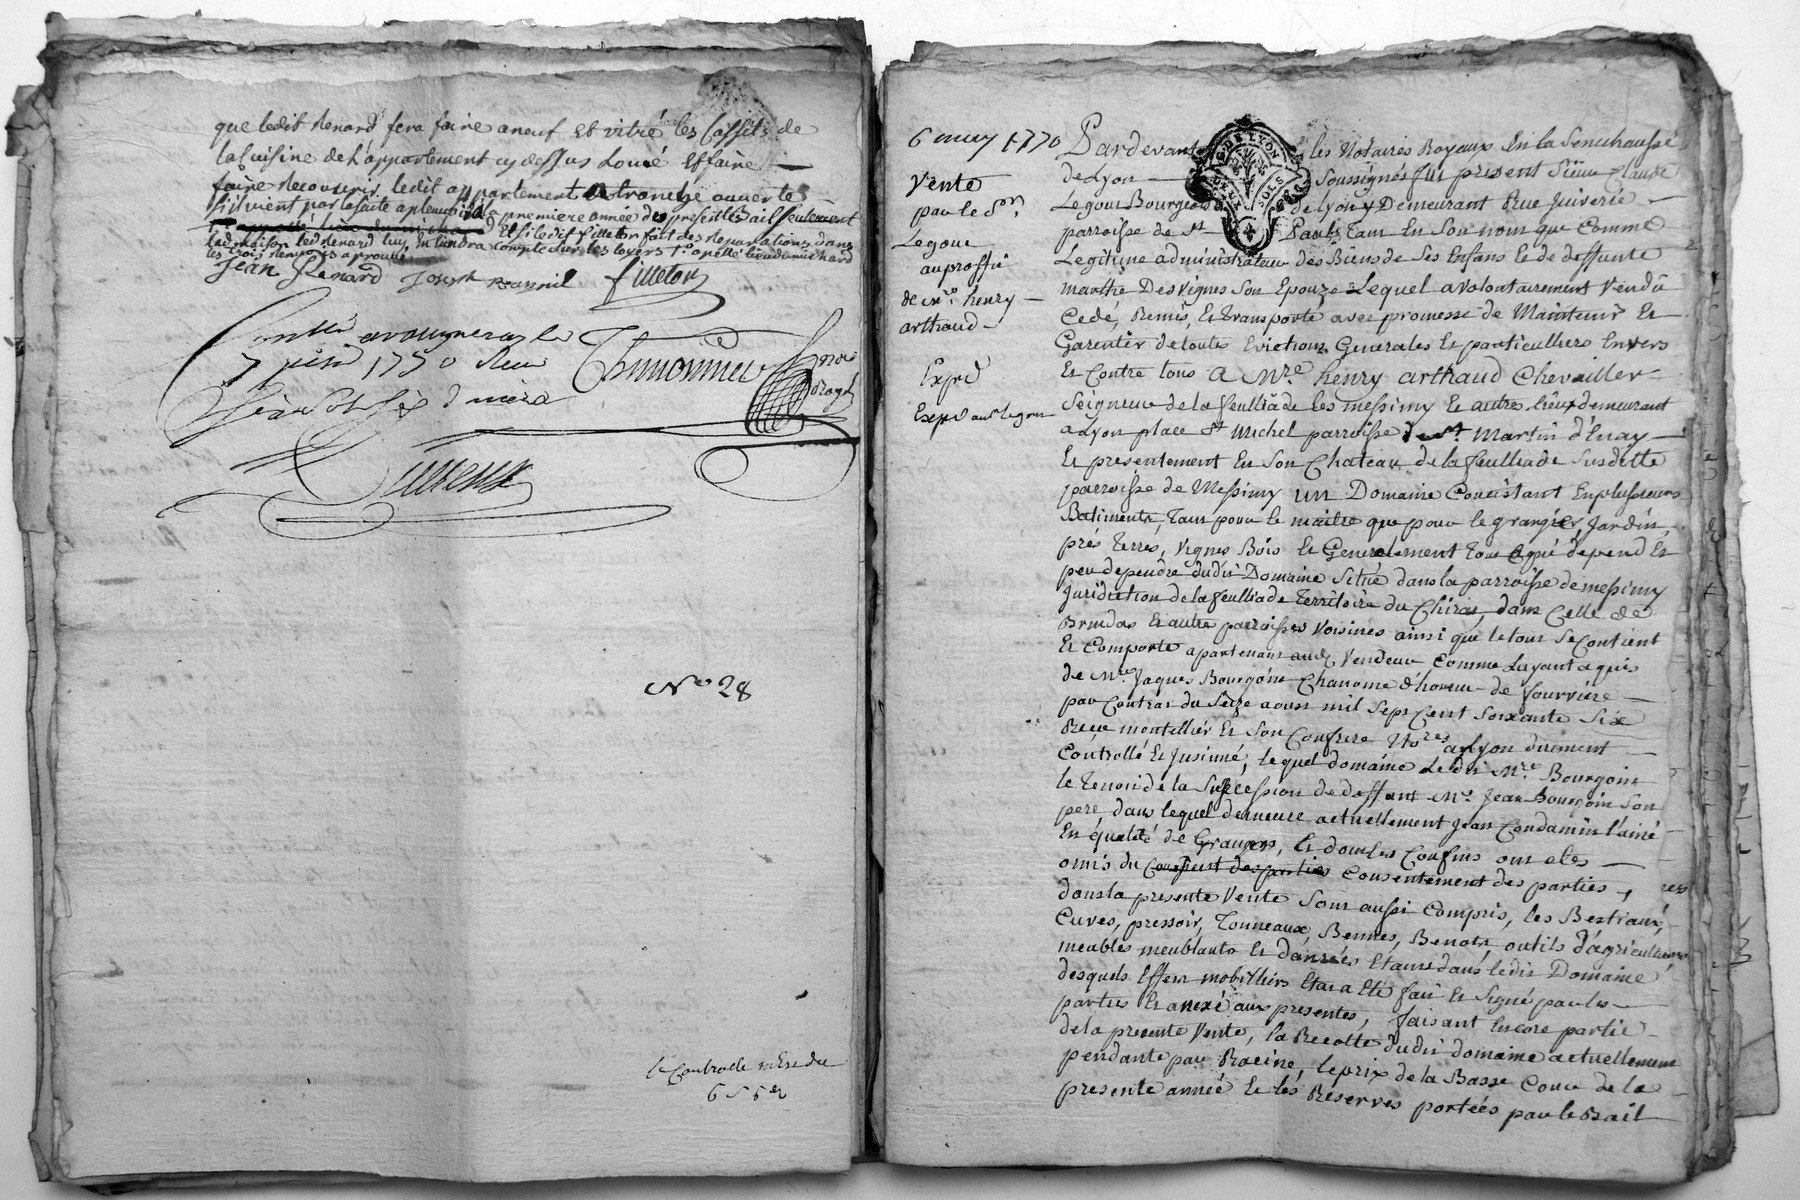 que ledit Renard fera faire aneuf et vitré les Cassits de
la Cuisine de l'appartement cy dessus Loué Et faire
faire Recouvrir ledit appartement a tranche ouverte
la premiere année du present Bail seulement
Et si ledit filleton fait des Reparations dans
lad maison led Renard luy En tiendra Compte sur les loyers
Jean Renard Joseph filleton
Thimonnier
7 1770
No 28
le Controle
6 s
6 may 1770
Vente
par le Sr
Legouv
au proffit
de Mre henry
arthaud
Expé
DE LYON
SOLS
Pardevant les Notaires Royaux En la Senechaussé
de Lyon Soussignés fut present Sieur Claude
Legouv Bourgeois de Lyon y Demeurant Rue Juiverie
parroisse de St Paul, tant En Son nom que Comme
Legitime administrateur des Biens de Ses Enfans & de deffunte
marthe Desvignes Son Epouze Lequel a volontairement Vendû
Cedé, Remis, Et transporté avec promesse de Maintenir Et
Garentir de toute Evictions Generales Et particulliers Envers
Et Contre tous a Mre henry arthaud Chevailler
Seigneur de la feulliade les messimy Et autres lieux demeurant
a Lyon place St Michel parroisse de St Martin d'Enay
Et presentement En Son Chateau de la feulliade Susditte
parroisse de Messimy un Domaine Consistant En plusieurs
Batiments, tant pour le maitre que pour le granger, Jardin,
prés terres, Vignes Bois Et Generalement tous ce qui depend Et
peu dependre dudit Domaine Situé dans la parroisse de messimy
Juridiction de la feulliade territoire du Chiras, dans Celle de
Brindas Et autre parroisses Voisines ainsi que le tout Se Contient
Et Comporte apartenant aud Vendeur Comme Layant aquis
de Mre Jaques Bourgoin Chanoine d'honneur de fourviere
par Contrat du Seize aoust mil Sept Cent Soixante Six
Reçu montellier Et Son Confrere Nores a Lyon duement
Controllé Et Insinué, lequel domaine Ledit Mre Bourgoin
le tenoit de la Succession de deffunt Mr Jean Bourgoin Son
pere, dans lequel demeure actuellement Jean Condamin l'ainé
En qualité de Granger, Et dont les Confins ont etes
omis du Consentement des parties,
dans la presente Vente Sont aussi Compris, les Bestiaux,
Cuves, pressoir, Tonneaux, Bennes, Benots, outils d'agriculture
meubles meublants Et danrées Etant dans ledit Domaine,
desquels Effets mobilliers Etat a Eté fait Et Signé par les
parties Et anexé aux presentes, faisant Encore partie
de la presente Vente, la Recolte dudit domaine actuellement
pendante par Racine, le prix de la Basse Cour de la
presente année Et les Reserves portées par le Bail